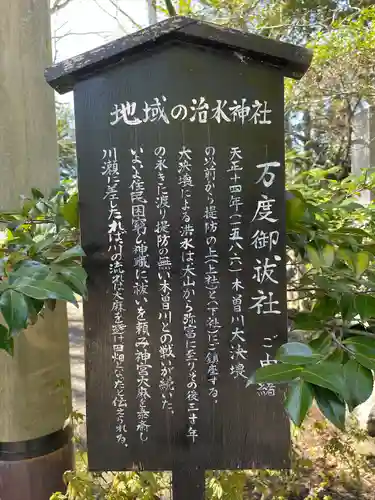 地域の治水神社
万度御祓社 ご由緒
天正十四年(一五八六)木曽川大決壊
の以前から堤防の上(上社)と(下社)にご鎮座する。
大決壊による洪水は大山から弥富に至りその後三十年
の永きに渡り堤防の無い木曽川との戦が続いた。
いよいよ住民困窮し神職に祓いを頼み神宮大麻を奉斎し
川瀬に差した札に川の流れは大麻を避け田畑になったと伝えられる。